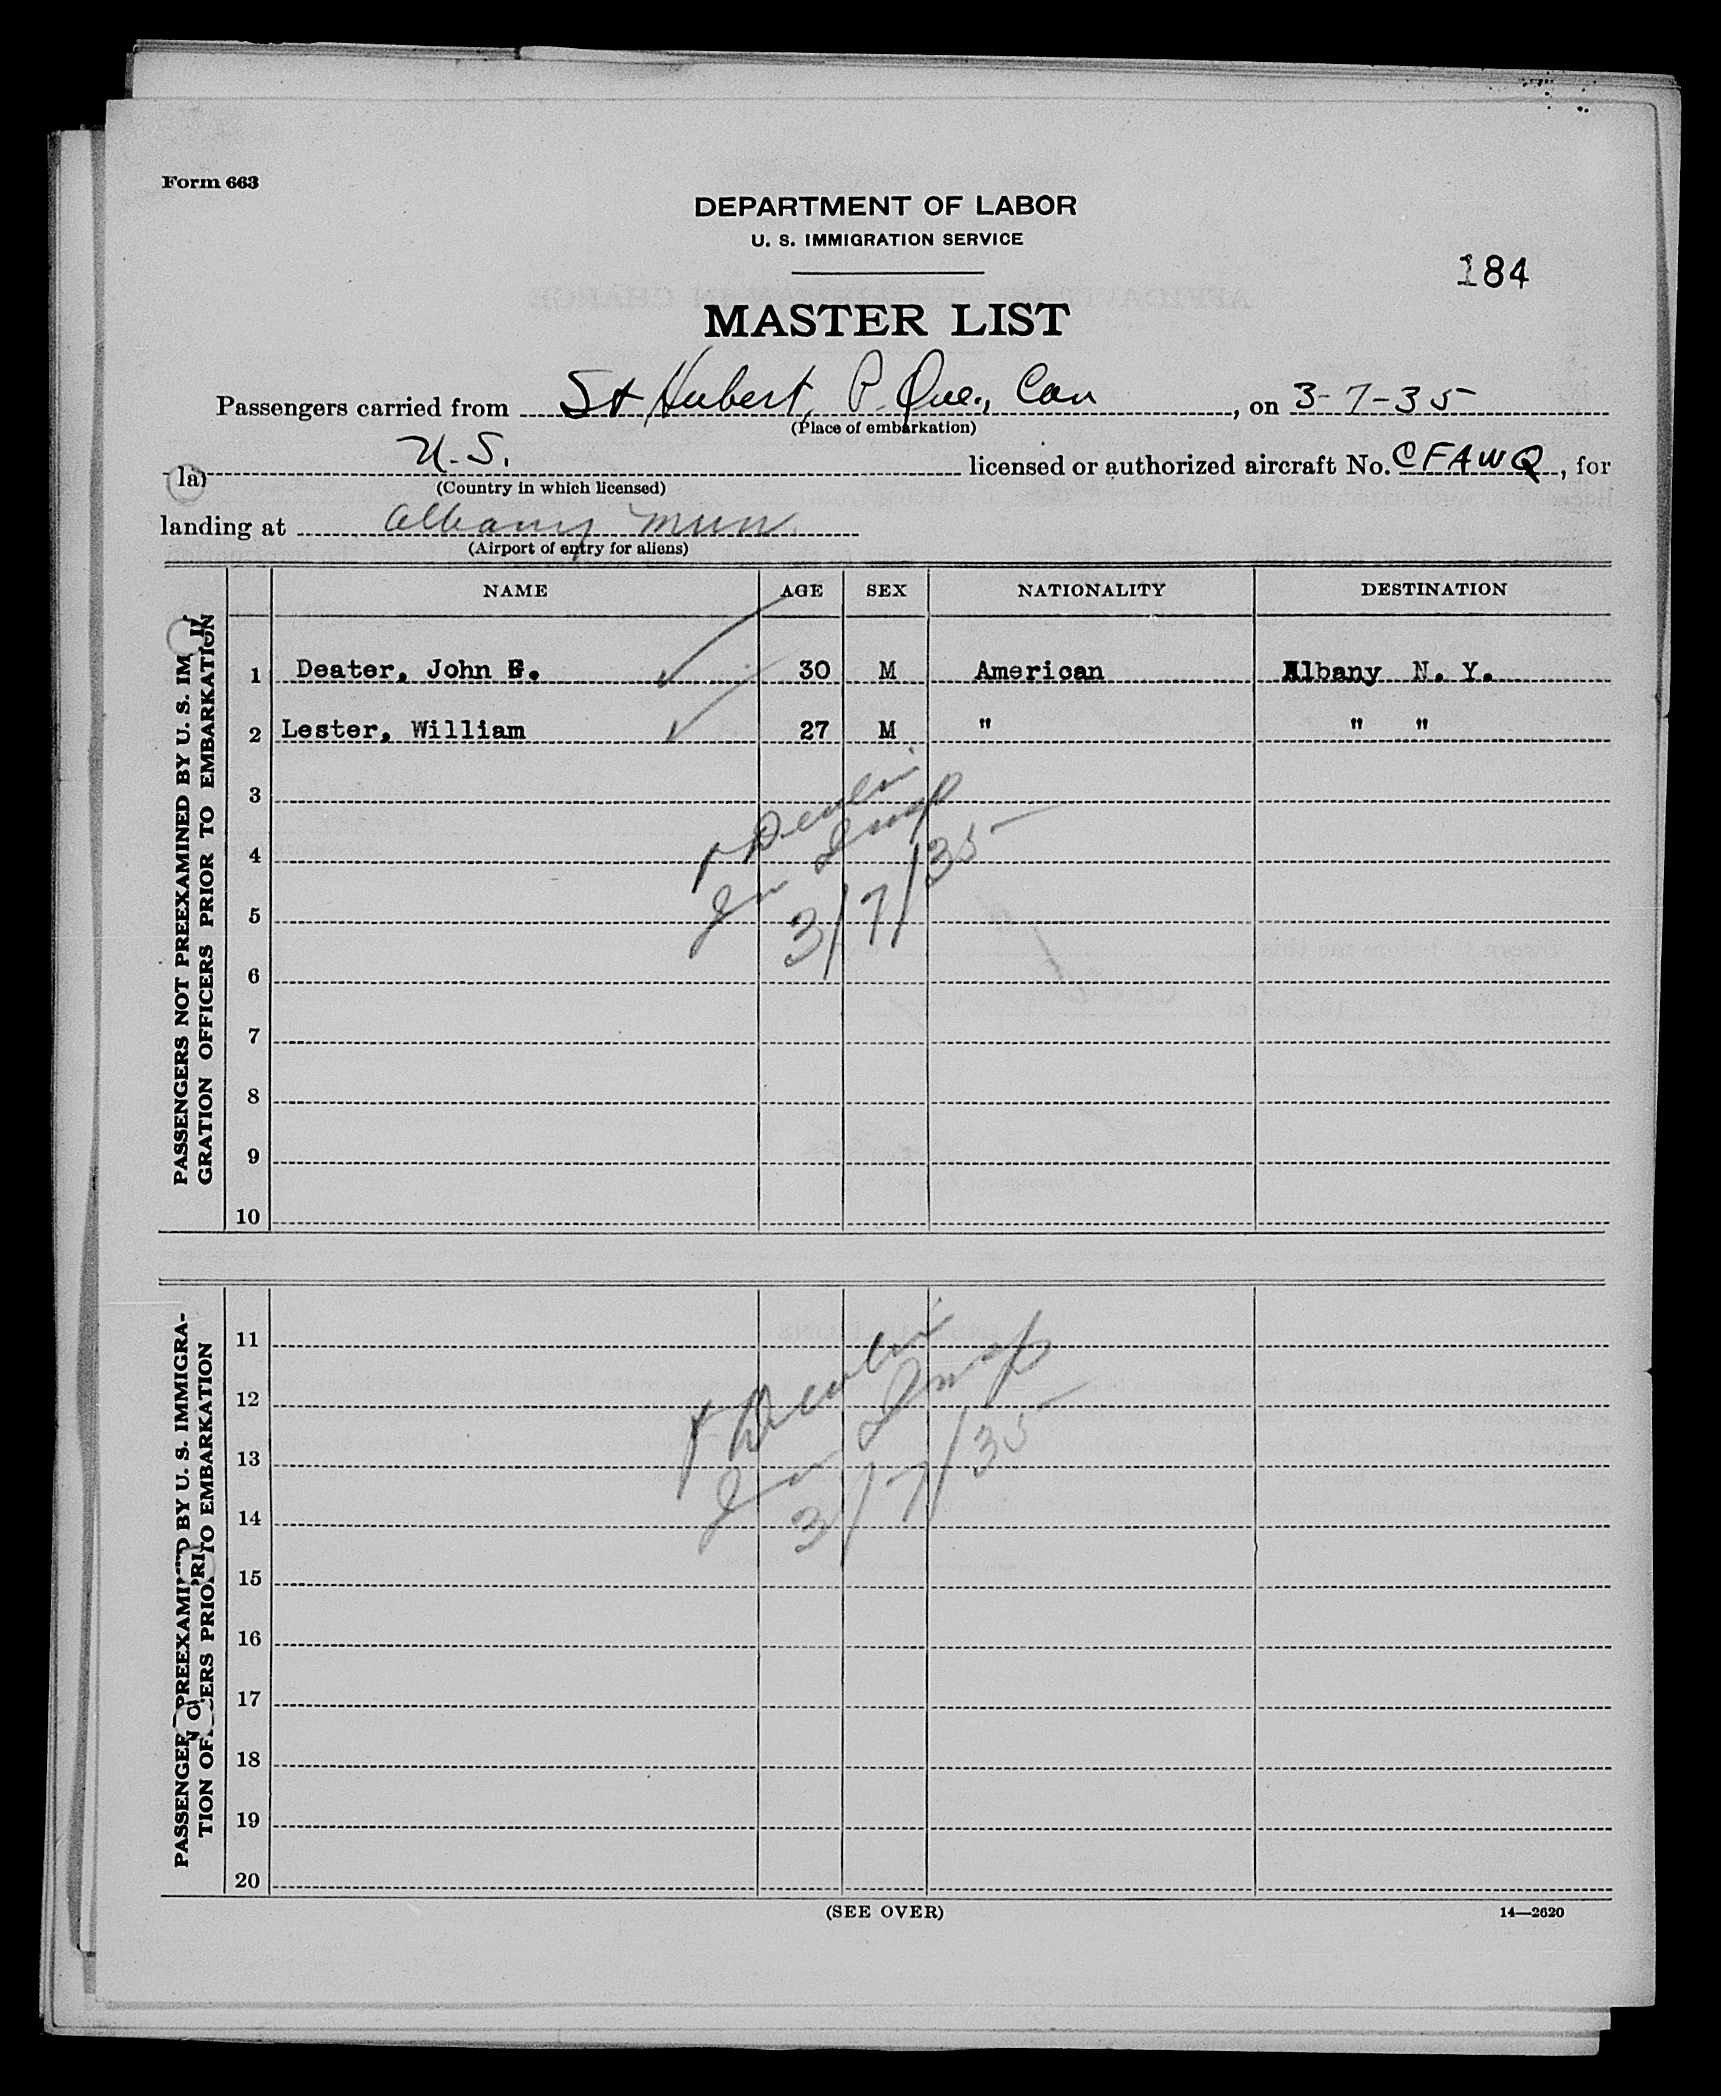 Form 663
DEPARTMENT OF LABOR
U. S. IMMIGRATION SERVICE
184
MASTER LIST
Passengers carried from St Hubert, P. Que., Can, on 3-7-35
(Place of embarkation)
U.S. licensed or authorized aircraft No. CFAWQ, for
(Country in which licensed)
landing at Albany Mun.
(Airport of entry for aliens)
NAME AGE SEX NATIONALITY DESTINATION
PASSENGERS NOT PREEXAMINED BY U. S. IM
GRATION OFFICERS PRIOR TO EMBARKATION
1 Deater, John 30 M American Albany N. Y.
2 Lester, William 27 M " " "
3
4
5
6
7
8
9
10
Devlin
Im Insp
3/7/35
PASSENGER PREEXAMI D BY U. S. IMMIGRA-
TION OF ERS PRIO TO EMBARKATION
11
12
13
14
15
16
17
18
19
20
Devlin
Im Insp
3/7/35
(SEE OVER)
14—2620